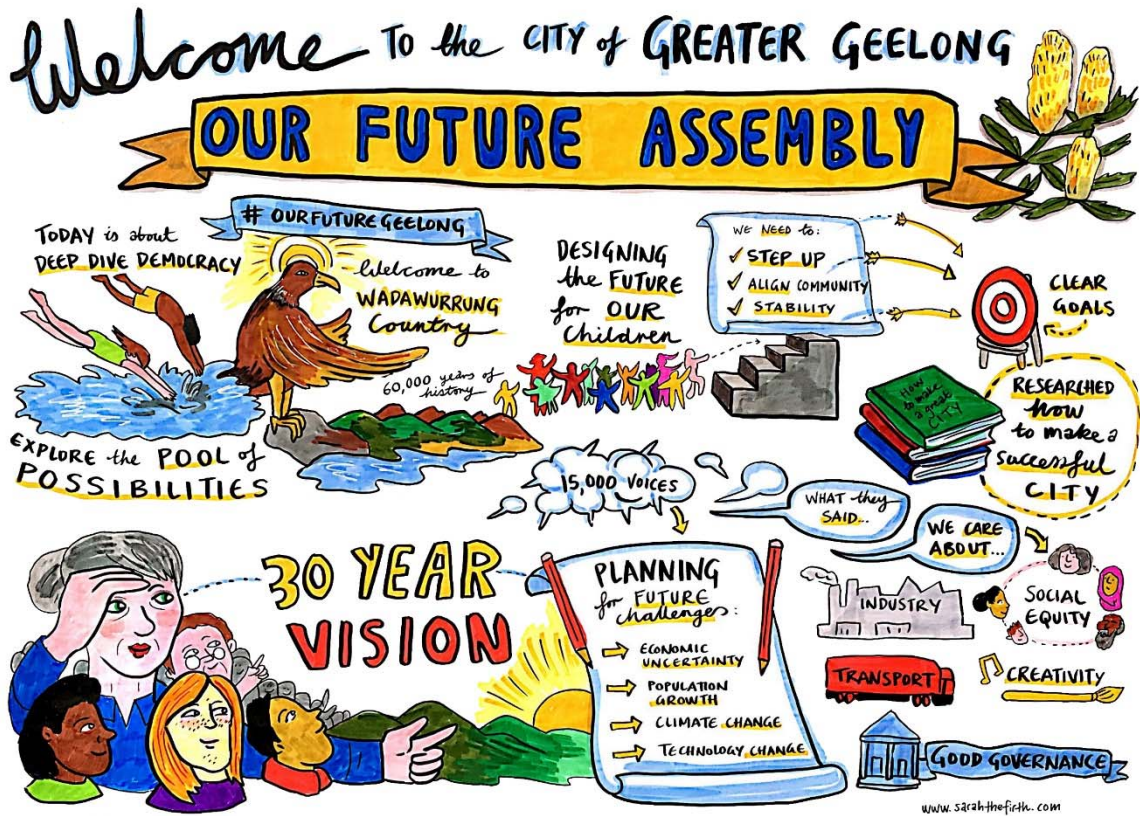 Welcome TO the CITY of GREATER GEELONG
OUR FUTURE ASSEMBLY
# OURFUTUREGEELONG
TODAY is about
DEEP DIVE DEMOCRACY
Welcome to
WADAWURRUNG
Country
60,000 years of
history
EXPLORE the POOL of
POSSIBILITIES
DESIGNING
the FUTURE
for OUR
Children
WE NEED to:
✓ STEP UP
✓ ALIGN COMMUNITY
✓ STABILITY
CLEAR
GOALS
HOW
to make
a great
CITY
RESEARCHED
how
to make a
successful
CITY
15,000 VOICES
WHAT they
SAID...
WE CARE
ABOUT...
30 YEAR
VISION
PLANNING
for FUTURE
challenges:
ECONOMIC
UNCERTAINTY
POPULATION
GROWTH
CLIMATE CHANGE
TECHNOLOGY CHANGE
INDUSTRY
SOCIAL
EQUITY
TRANSPORT
CREATIVITY
GOOD GOVERNANCE
www.sarahthefirth.com